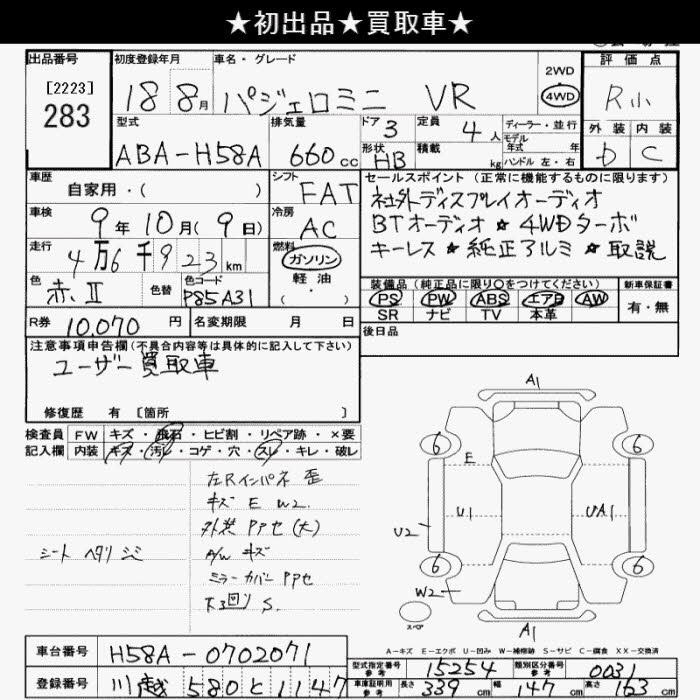 ★初出品★買取車★
出品番号 初度登録年月 車名・グレード 評価点
[2223]
283
18 8月 パジェロミニ VR
2WD
4WD
R小
型式 排気量 ドア 3 定員 4人 ディーラー・並行 外装 内装
ABA-H58A 660cc 形状 HB 積載 kg モデル年式 年 ハンドル 左・右 D C
車歴 自家用・( ) シフト FAT
セールスポイント(正常に機能するものに限ります)
社外ディスプレイオーディオ
BTオーディオ★4WDターボ
キーレス★純正アルミ★取説
車検 9年10月(9日) 冷房 AC
走行 4万6千923km 燃料 ガソリン
軽油
( ・ )
色 赤II 色替 色コード P85A31
装備品(純正品に限り○をつけてください) 新車保証書
PS PW ABS エアB AW 有・無
SR ナビ TV 本革
R券 10,070円 名変期限 月 日
後日品
注意事項申告欄(不具合内容等は具体的に記入して下さい)
ユーザー買取車
修復歴 有〔箇所 〕
検査員 FW キズ・飛石・ヒビ割・リペア跡・×要
記入欄 内装 キズ・汚レ・コゲ・穴・スレ・キレ・破レ
左Rインパネ歪
キズ E W2.
外装 PPセ(大)
シート ヘタリ シミ A/W キズ
ミラーカバー PPセ
下回り S.
A1
6 6
E
U1 UA1
U2
6 6
W2
スペア
A1
A-キズ E-エクボ U-凹み W-補修跡 S-サビ C-腐食 XX-交換済
車台番号 H58A-0702071
型式指定番号 参考 15254 類別区分番号 参考 0031
登録番号 川越 580 と 1147
車庫証明用 参考 長さ 339cm 幅 147cm 高さ 153cm